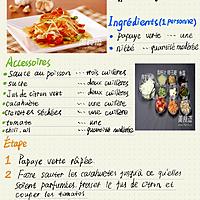 Ingrédients (1 personne)
• papaye verte --- une
• niébé --- quantité modérée
Accessoires
• sauce au poisson --- trois cuillères
• sucre --- deux cuillères
• jus de citron vert --- deux cuillères
• cacahuète --- une cuillère
• crevettes séchées --- une cuillère
• tomate --- une
• chili, ail --- quantité modérée
Étape
1 Papaye verte râpée.
2 Faire sauter les cacahuètes jusqu'à ce qu'elles
soient parfumées, presser le jus de citron et
couper les tomates